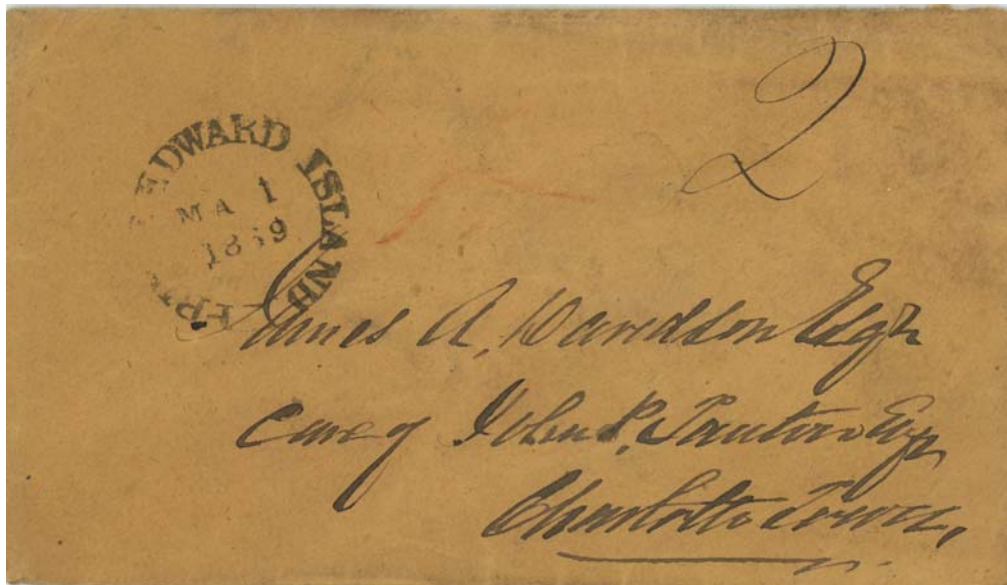 2
EDWARD ISLAND
MA 1
1859
James A. Davidson Esqr
care of John P. Tanton Esqr
Charlotte Town,